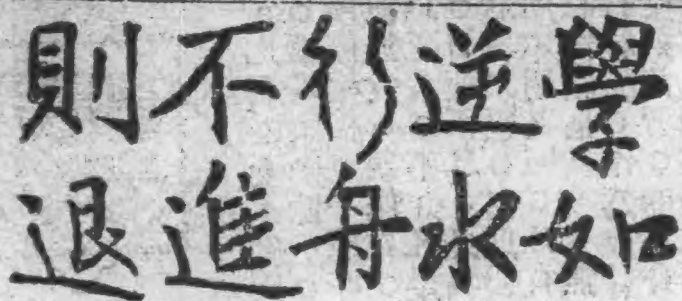 學如
逆水
行舟
不進
則退